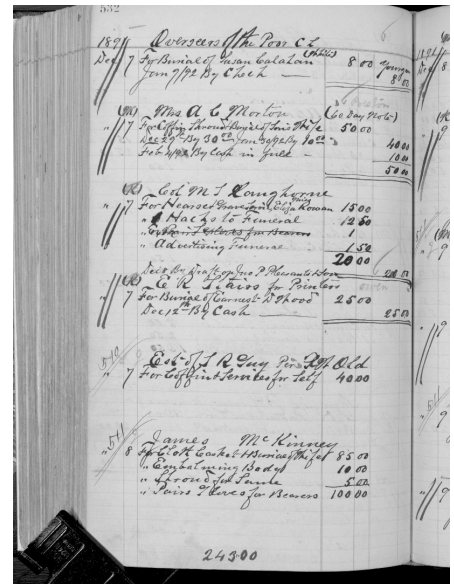 532
1891 Overseers of the Poor C L
Dec 7 For Burial of Susan Calahan 8 00
Jan 9/92 By Check 8 00
Mrs A C Morton (60 Day Note)
" 7 For Coffin Shroud Burial of Son's Wife 50 00
Dec 29th By 30 00 Jan 30/92 By 10 00 40 00
Feb 4/92 By Cash in full 10 00
50 00
Col M S Langhorne
" 7 For Hearse & Elija Rowan 15 00
" Hacks to Funeral 12 50
" Pair Gloves for Bearers 1
" Advertising Funeral 1 50
20 00
By Draft on Jno P Pleasants & Son 20 00
E R Stairs for Printers
" 7 For Burial of Earnest D Thood 25 00
Dec 12th By Cash 25 00
510
Est of S R Guy Old
" 7 For Coffin & Services for Self 40 00
511
James McKinney
" 8 For Cloth Casket & Burial of Wife 85 00
" Embalming Body 10 00
" Shroud for Same 5 00
" Pairs Gloves for Bearers 100 00
243 00